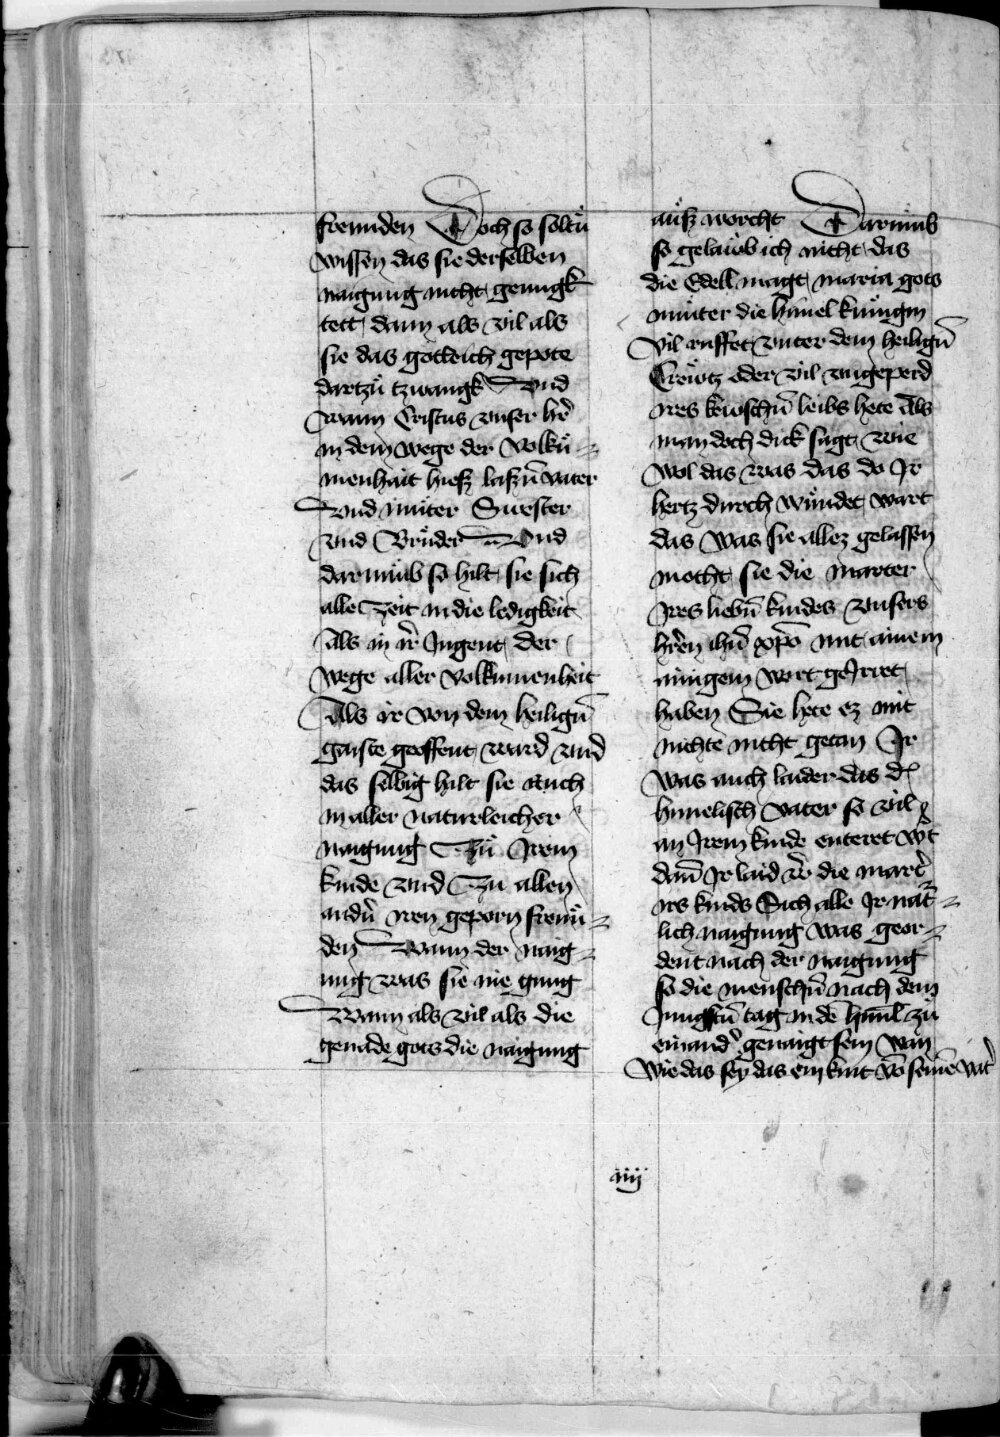 freunden Doch so soltu
wissen das sie derselben
naigung nicht genugk
tett dann als vil als
sie das gotleich gepote
dartzů tzwangk Vnd
Wann Cristus vnser h̄r
in dem wege der Volku᷑=
menhait hiesz laszn̄ vater
Vnd můter Swester
vnd Brůder Vnd
darumb so hilt sie sich
alle zeit in die ledigkeit
Als in ir̄ Jugent der
wege aller Volkumenheit
Als ir von dem heilign̄
gaiste geoffent ward vnd
das selbig hilt sie Auch
in aller naturleicher
naigung Tzů Irem
kinde vnd Tzu allen
andn̄ iren geporn freun=
den Wann der naig=
ung was sie nie gung
Wann als vil als die
genade gots die naigung
ausz worcht Darumb
so gelaůb ich nicht das
die Edell magt maria gots
můter die himel kůnigin
Vil ruffet vnter dem heilign̄
Crewtz oder vil vngeperd
ires kewschn̄ leibs hete Als
man doch dick sagt wie
wol das was das do Ir
hertz durch wůndet wart
das was sie allez gelassen
mocht sie die marter
Ires liebn̄ kindes vnsers
hr̄en ihū xpō mit ainem
ainigem wort geirret
haben Sie hete ez mit
nichte nicht getan Ir
was auch laider das d̄
himelisch vater so vil
an Irem kinde enteret w̄t
dan̄ Ir laid vb̄ die mart̄
irs kinds Sich alle Ir nat̄=
lich naigung was geor=
dent nach der naigung
so die menschn̄ nach dem
Jungstn̄ tag in dē himl̄ zů
einand̄ genaigt sein wan̄
wie das sey das ein kint vō seinē vat̄
aiij